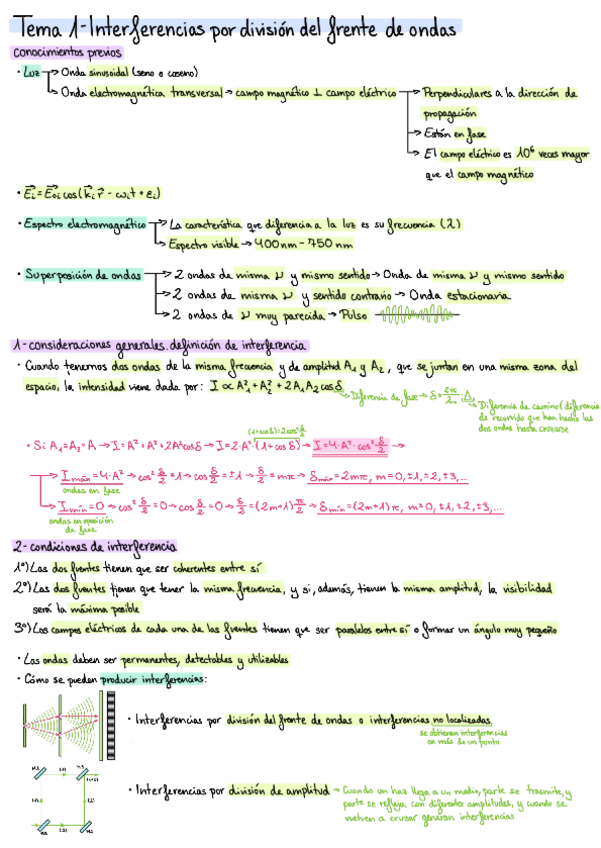 Tema 1-Interferencias por división del frente de ondas
conocimientos previos
· Luz → Onda sinusoidal (seno o coseno)
→ Onda electromagnética transversal → campo magnético ⊥ campo eléctrico → Perpendiculares a la dirección de
propagación
→ Están en fase
→ El campo eléctrico es 10⁶ veces mayor
que el campo magnético
· E⃗i = E⃗oi cos(k⃗i r⃗ - ωit + εi)
· Espectro electromagnético → La característica que diferencia a la luz es su frecuencia (λ)
→ Espectro visible → 400nm - 750 nm
· Superposición de ondas → 2 ondas de misma ν y mismo sentido → Onda de misma ν y mismo sentido
→ 2 ondas de misma ν y sentido contrario → Onda estacionaria
→ 2 ondas de ν muy parecida → Pulso
1-consideraciones generales. definición de interferencia
· Cuando tenemos dos ondas de la misma frecuencia y de amplitud A₁ y A₂, que se juntan en una misma zona del
espacio, la intensidad viene dada por: I ∝ A₁² + A₂² + 2A₁A₂cosδ
→ Diferencia de fase → δ = 2π/λ₀ · Δ
→ Diferencia de camino (diferencia
de recorrido que han hecho las
dos ondas hasta cruzarse
(1+cosδ) = 2cos² δ/2
· Si A₁=A₂=A → I=A²+A²+2A²cosδ → I=2·A²·(1+cosδ) → I=4·A²·cos² δ/2 →
→ I máx = 4·A² → cos² δ/2 = 1 → cos δ/2 = ±1 → δ/2 = mπ → δmáx = 2mπ, m=0,±1,±2,±3,...
ondas en fase
→ I mín = 0 → cos² δ/2 = 0 → cos δ/2 = 0 → δ/2 = (2m+1) π/2 → δmín = (2m+1)π, m=0,±1,±2,±3,...
ondas en oposición
de fase
2-condiciones de interferencia
1º) Las dos fuentes tienen que ser coherentes entre sí
2º) Las dos fuentes tienen que tener la misma frecuencia, y si, además, tienen la misma amplitud, la visibilidad
será la máxima posible
3º) Los campos eléctricos de cada una de las fuentes tienen que ser paralelos entre sí o formar un ángulo muy pequeño
· Las ondas deben ser permanentes, detectables y utilizables
· Cómo se pueden producir interferencias:
· Interferencias por división del frente de ondas o interferencias no localizadas
se obtienen interferencias
en más de un punto
· Interferencias por división de amplitud → Cuando un haz llega a un medio, parte se trasmite, y
parte se refleja con diferentes amplitudes, y cuando se
vuelven a cruzar generan interferencias